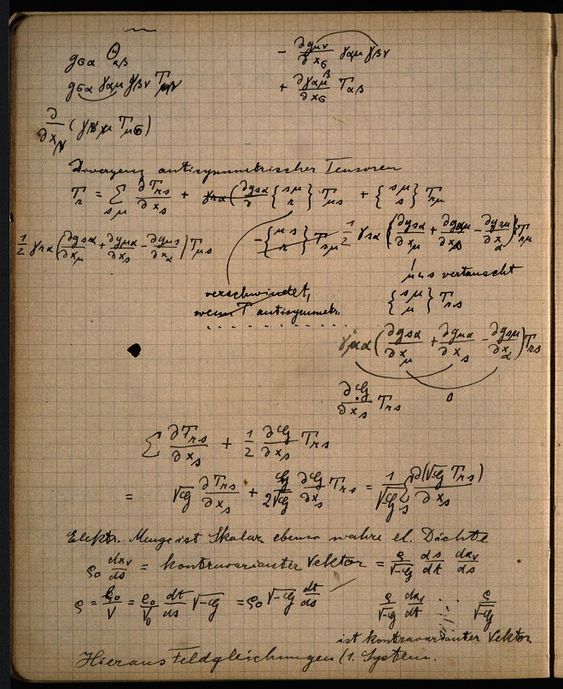 g_{σα} Θ_{αβ}
g_{σα} γ_{αμ} γ_{βν} T_{μν}
- ∂g_{μν}/∂x_σ γ_{αμ} γ_{βν}
+ ∂γ_{αμ}/∂x_σ T_{αβ}
∂/∂x_ν (γ T_{μσ})
Divergenz antisymmetrischer Tensoren
T_r = ∑_{sμ} ∂T_{rs}/∂x_s + {sμ r} T_{μs} + {sμ s} T_{rμ}
1/2 γ_{rα} (∂g_{sα}/∂x_μ + ∂g_{μα}/∂x_s - ∂g_{μs}/∂x_α) T_{μs}
- {μs r} T_{sμ}
1/2 γ_{sα} (∂g_{sα}/∂x_μ + ∂g_{αμ}/∂x_s - ∂g_{sμ}/∂x_α) T_{rμ}
μ u s vertauscht
{sμ μ} T_{rs}
verschwindet,
wenn T antisymmetr.
γ_{μα} (∂g_{sα}/∂x_μ + ∂g_{μα}/∂x_s - ∂g_{sμ}/∂x_α) T_{rs}
0
∂G/∂x_s T_{rs}
∑ ∂T_{rs}/∂x_s + 1/2 ∂G/∂x_s T_{rs}
= √G ∂T_{rs}/∂x_s + G/2√G ∂G/∂x_s T_{rs} = 1/√G ∑_s ∂(√G T_{rs})/∂x_s
Elektr. Menge ist Skalar ebenso wahre el. Dichte
ρ_0 dx_ν/ds = kontravarianter Vektor = ρ/√-G ds/dt dx_ν/ds
ρ = ρ_0/V = ρ_0/V_0 dt/ds √-G = ρ_0 √-G dt/ds
ρ/√-G dx_ν/dt . . . ρ/√-G
ist kontravarianter Vektor
Hieraus Feldgleichungen (1. System.